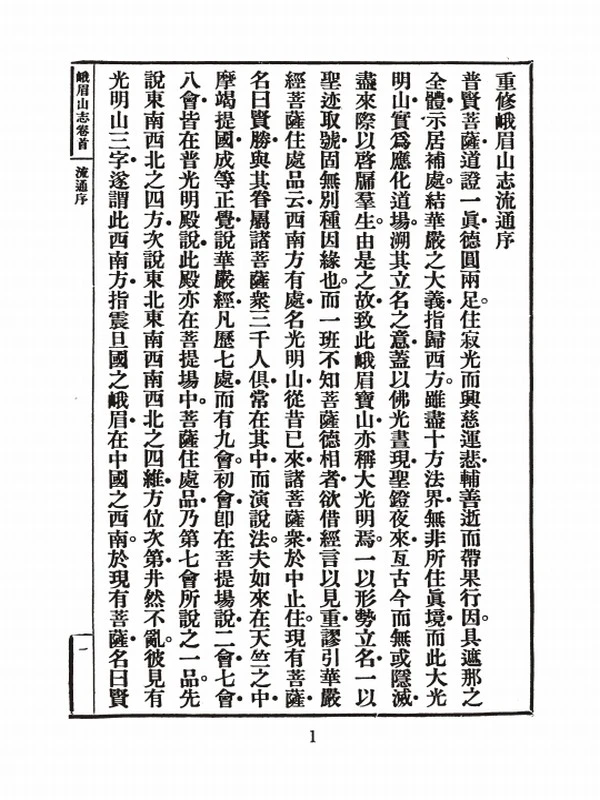 重修峨眉山志流通序
普賢菩薩道證一眞德圓兩足。住寂光而興慈運悲輔善逝而帶果行因。具遮那之
全體示居補處。結華嚴之大義指歸西方。雖盡十方法界無非所住眞境而此大光
明山實爲應化道場。溯其立名之意蓋以佛光晝現聖鐙夜來亙古今而無或隱滅
盡來際以啓牖羣生。由是之故致此峨眉寶山亦稱大光明焉。一以形勢立名一以
聖迹取號固無別種因緣也。而一班不知菩薩德相者欲借經言以見重謬引華嚴
經菩薩住處品云西南方有處名光明山從昔已來諸菩薩衆於中止住。現有菩薩
名曰賢勝與其眷屬諸菩薩衆三千人俱常在其中而演說法。夫如來在天竺之中
摩竭提國成等正覺說華嚴經凡歷七處而有九會。初會卽在菩提場說二會七會
八會皆在普光明殿說此殿亦在菩提場中。菩薩住處品乃第七會所說之一品。先
說東南西北之四方次說東北東南西南西北之四維方位次第井然不亂。彼見有
光明山三字遂謂此西南方指震旦國之峨眉在中國之西南。於現有菩薩名曰賢
峨眉山志卷首
流通序
一
1